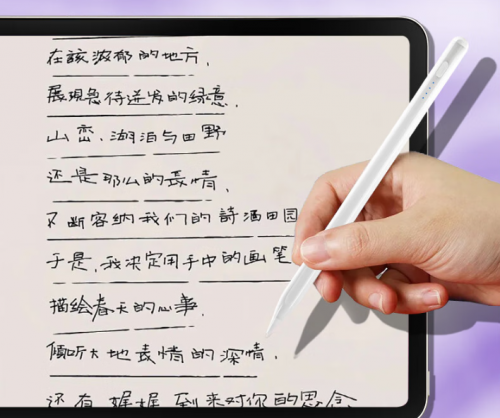 在該浓郁的地方,
展现急待迸发的绿意,
山峦、湖泊与田野
还是那么的表情,
不断容纳我们的詩酒田园
于是,我决定用手中的画笔
描绘春天的心事,
倾听大地表情的深情,
还有 娓娓 到来对你的思念